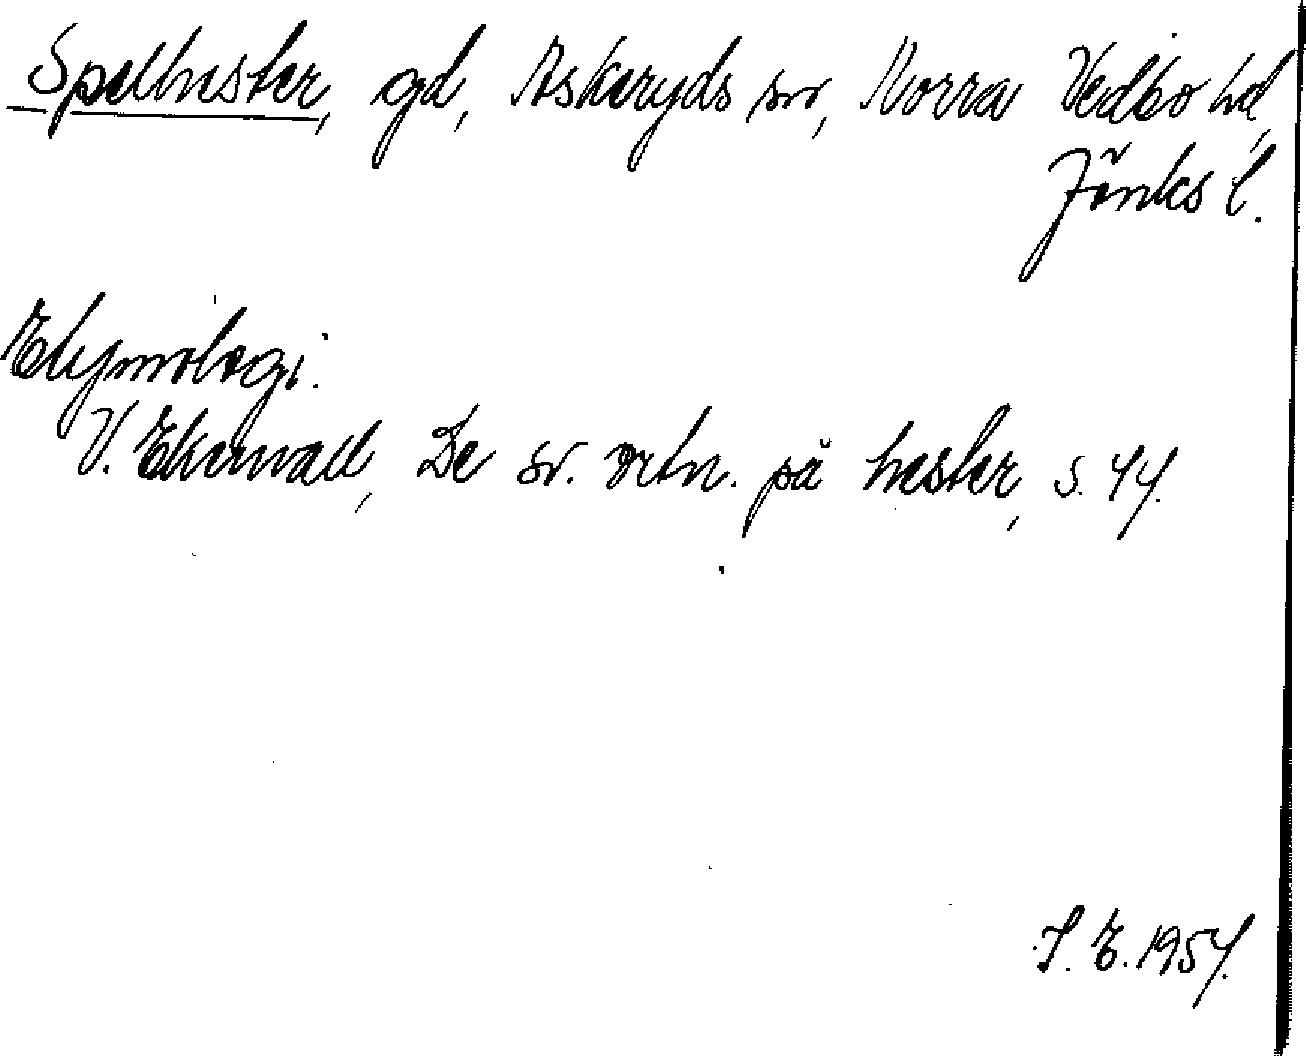 Spelhester, gd, Askeryds sn, Norra Vedbo hd,
Jönks l.
Etymologi.
V. Ekenvall, De sv. ortn. på hester, s. 44.
S. E. 1957.